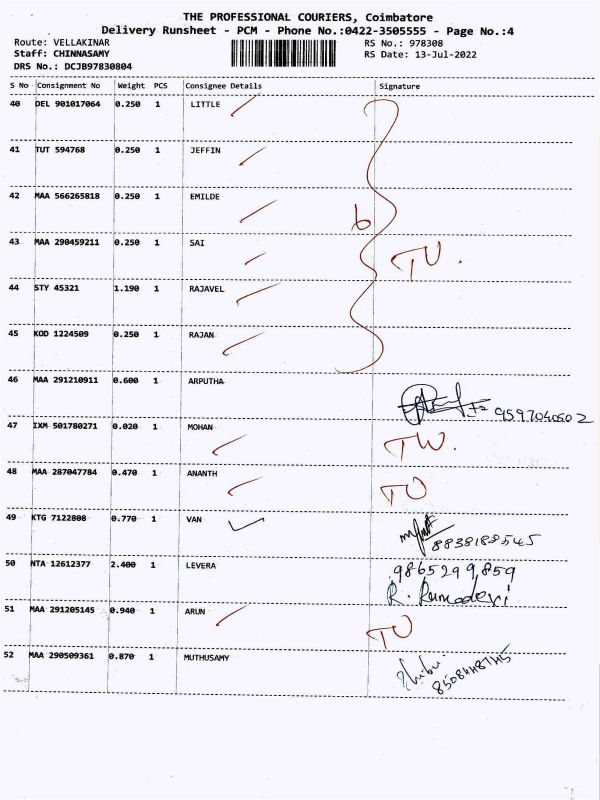 THE PROFESSIONAL COURIERS, Coimbatore
Delivery Runsheet - PCM - Phone No.:0422-3505555 - Page No.:4
Route: VELLAKINAR RS No.: 978308
Staff: CHINNASAMY RS Date: 13-Jul-2022
DRS No.: DCJB97830804
S No Consignment No Weight PCS Consignee Details Signature
40 DEL 901017064 0.250 1 LITTLE
41 TUT 594768 0.250 1 JEFFIN
42 MAA 566265818 0.250 1 EMILDE
6
43 MAA 290459211 0.250 1 SAI
TU.
44 STY 45321 1.190 1 RAJAVEL
45 KOD 1224509 0.250 1 RAJAN
46 MAA 291210911 0.600 1 ARPUTHA
9597040502
47 IXM 501780271 0.020 1 MOHAN TW.
48 MAA 287047784 0.470 1 ANANTH TU
49 KTG 7122808 0.770 1 VAN
8838183545
50 NTA 12612377 2.400 1 LEVERA 9865299859
R. Ramadevi
51 MAA 291205145 0.940 1 ARUN TU
52 MAA 290509361 0.870 1 MUTHUSAMY